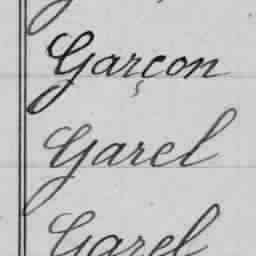 Garçon
Garel
Garel